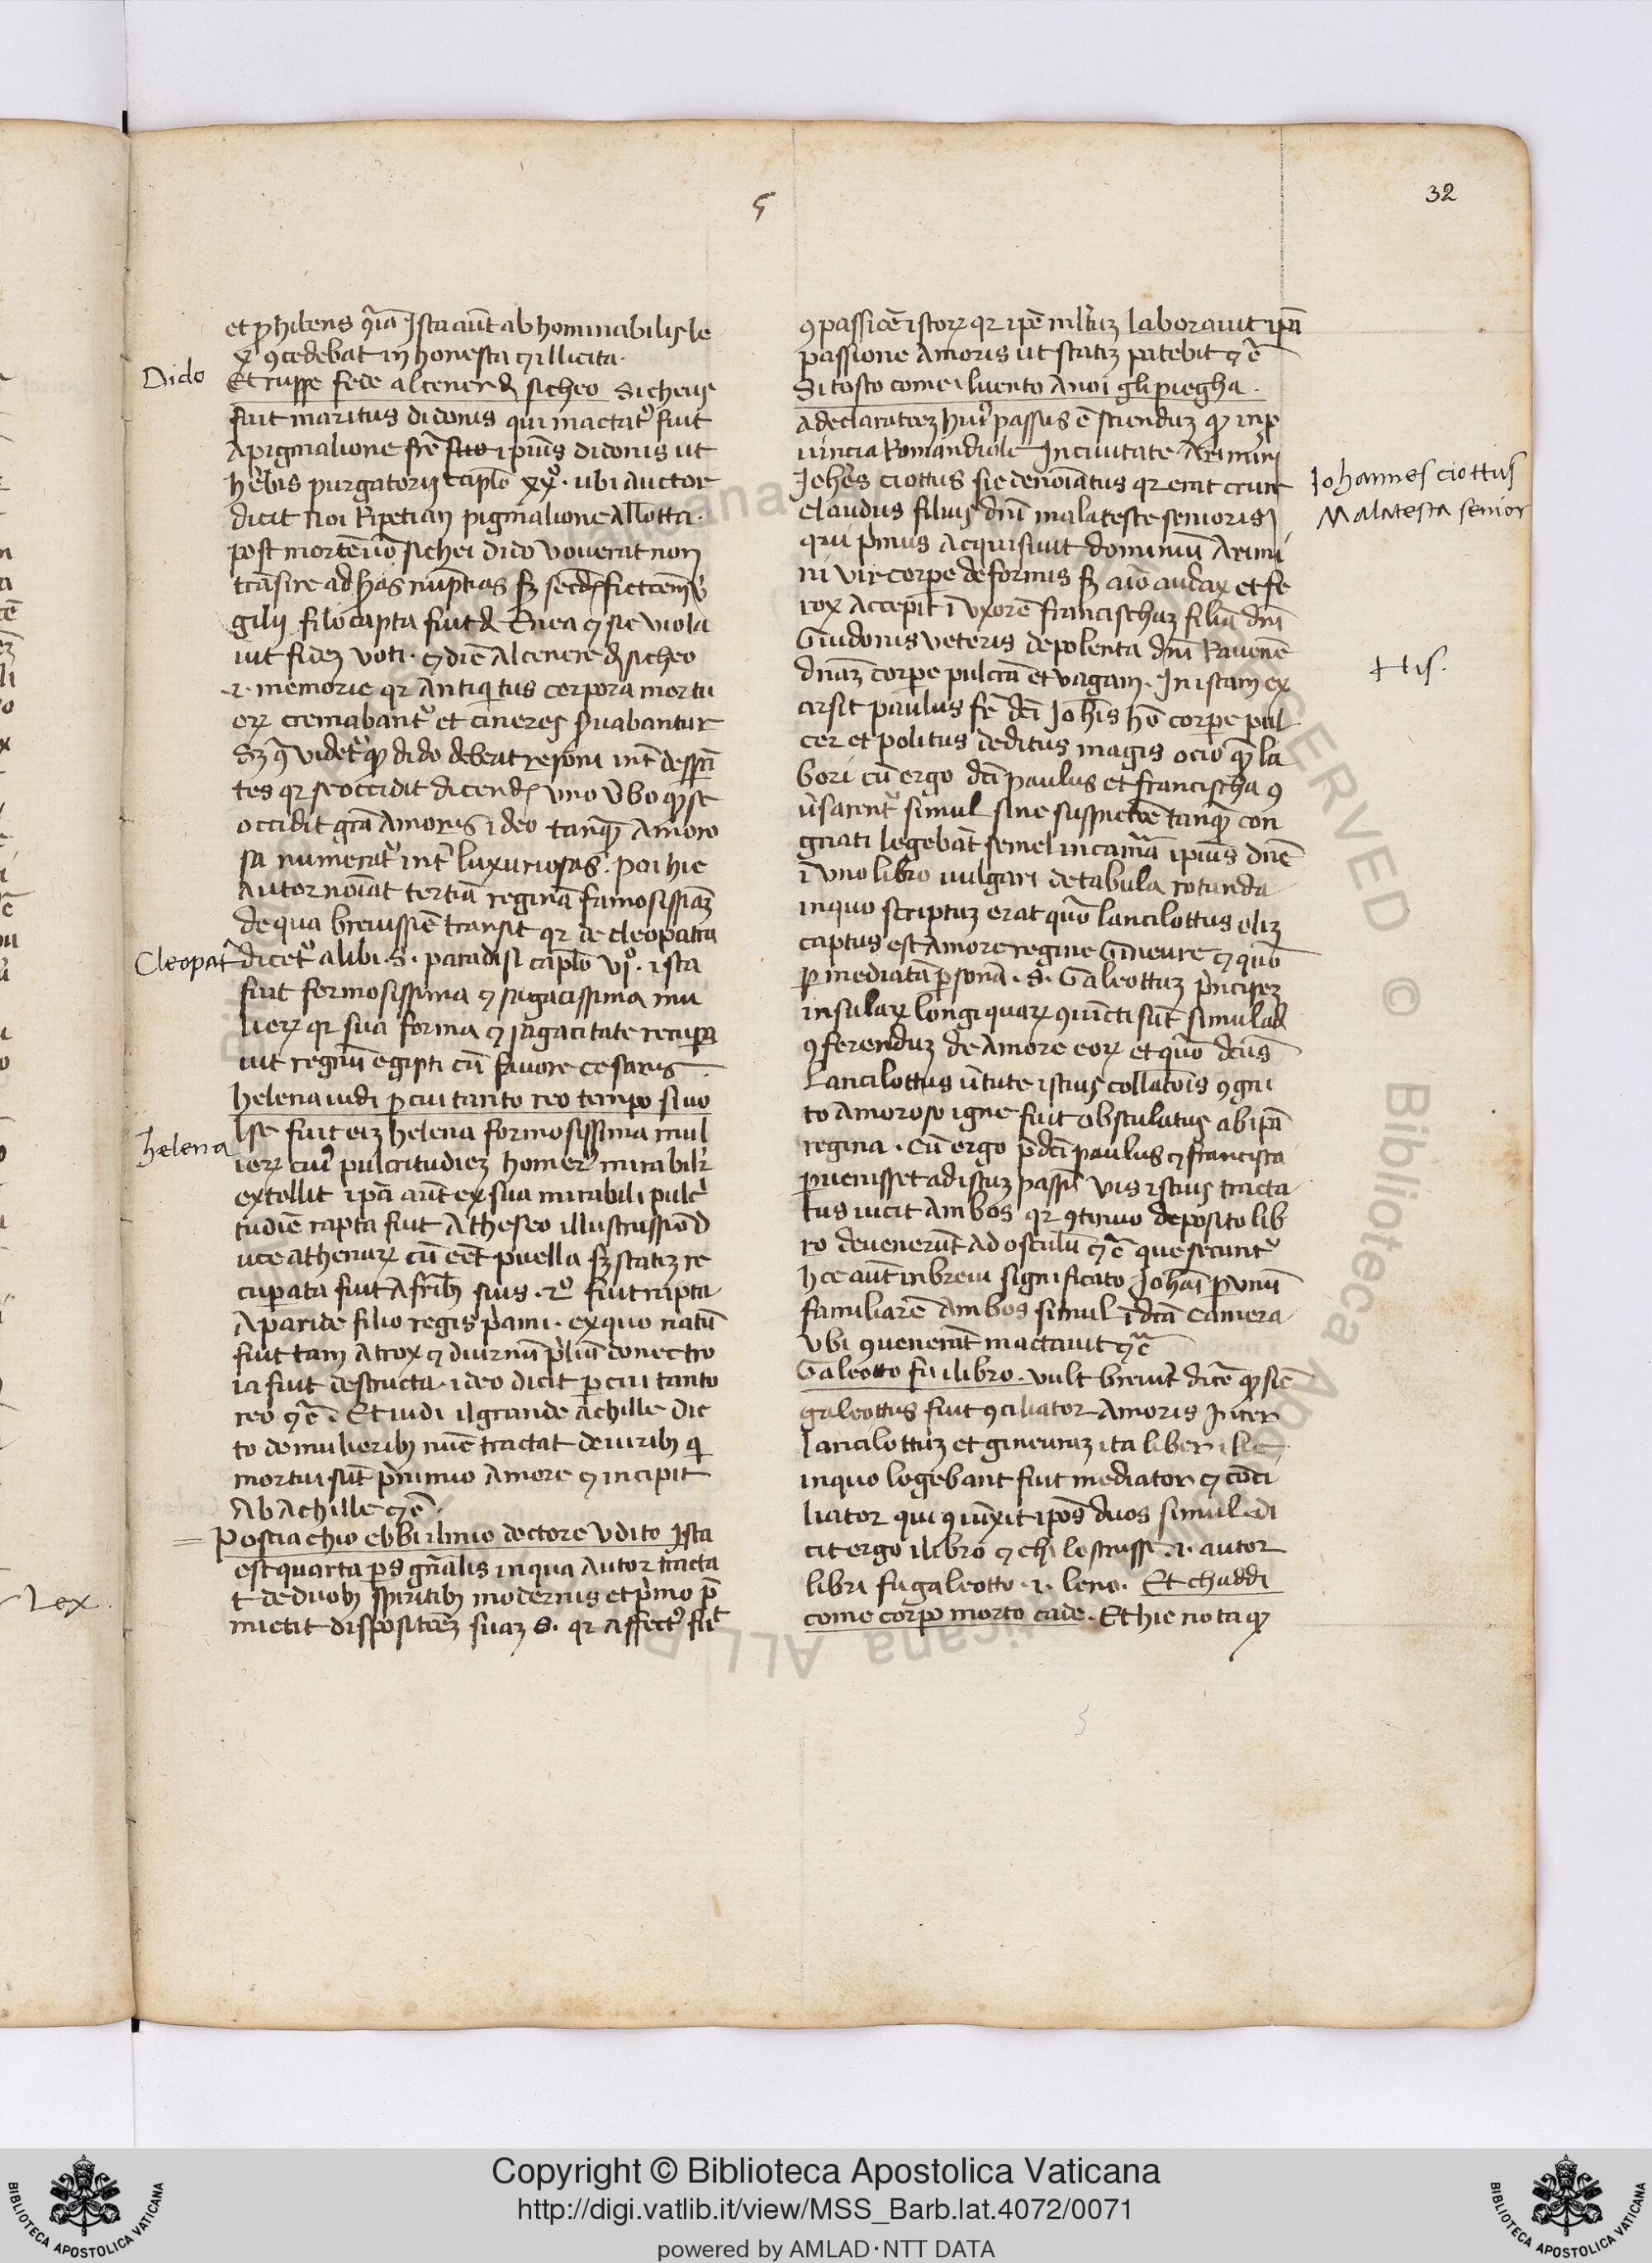 5
32
et p̱hibens q̄ia Ista aūt abhominabilis le
x ꝯcedebat inhonesta ⁊ illicita.
Dido
Et ruppe fede al cener d̄ sicheo Sicheus
fuit maritus didonis qui mactatꝰ fuit
a pigmalione frē suo ipiūs didonis ut
hēbis purgatorij caplō xxꝰ. ubi auctor
dicit noi Ripetian pigmalione allotta.
post mortē uō sichei dido vouerat non
trāsire ad has nuptias sꝫ
gilij filo capta fuit d̄ Enea ⁊ sic viola
uit fidēꝫ voti. ⁊ diē Al cenere d̄ sicheo
.i. memorie qr antiq̇tus corpora mortu
orꝝ cremabantᷣ et cineres ẜuabantur
Sꝫ q̄ videtᷣ qꝙ dido deberat reponi int̄ desp̱a
tes qr se occidit dicendꝫ uno v̄bo qꝙ se
occidit grā amoris ideo tanqꝫ amoro
sa numeratᷣ int̄ luxuriosas. poi hic
autor noīat tertiā reginā famosissiāꝫ
de qua breuissiē transit qr de cleopatra
Cleopatᷓ
dicetᷣ alibi .s. paradisi caplō vjꝰ. ista
fuit formosissima ⁊ sagacissima mu
lierꝝ qr sua forma ⁊ sagacitate recup̱a
uit regnū egipti cū fauore cesaris.
helena uidi p̱ cui tanto reo tempo si uo
helena
lse fuit eiꝫ helena formosissima mul
ierꝝ cuiꝰ pulcritudiēꝫ homerꝰ mirabilr̄
extollit ip̄a aūt ex sua mirabili pulcᷣ
tudiē rapta fuit a theseo illustrissiō d
uce athenarꝝ cū eēt puella sꝫ statiꝫ re
cup̱ata fuit a frībꝫ suis. 2ꝰ fuit rapta
a paride filio regis p̊ami. ex quo natū
fuit tam atrox ⁊ diurnū p̄liū donec tro
ia fuit destructa. ideo dicit p̱ cui tanto
reo ⁊c̄. Et uidi il grande achille Dic
to de mulieribꝫ nūc tractat de uiribꝫ q̇
mortui sūt p̄ nimio amore ⁊ incipit
Ab Achille ⁊c̄.
= Poscia chio ebbi ilmio doctore udito Ista
est quarta ps gn̄alis in qua autor tracta
t de duobꝫ spiritibꝫ modernis et p̊mo p̄
mictit dispositōeꝫ suaꝫ s. qr affectꝰ fuit
ꝯpassiōe istorꝝ qr ip̄e mltuꝫ laborauit ip̄a
passione amoris ut statiꝫ patebit ⁊c̄
Si tosto come iluento a noi gli piegha.
ad declaratōeꝫ huiꝰ passus ē sciendaꝫ qꝙ in p̱
uincia Romandiole In ciuitate Arimini
Johannes ciottus
Malatesta senior
Johēs ciottus sic denoīatus qr erat crure
claudus filius dnī malateste senioris
qui p̊mus acquisiuit dominiū Arimi
ni vir corpe deformis sꝫ aīo audax et fe
rox accepit ī uxorē francischaꝫ filiā dnī
Guidonis veteris de polenta dnī Rauenē
His.
dnāꝫ corpe pulcrā et vagam. In istam ex
arsit paulus fr̄ dc̄i Johīs hō corpe pul
cer et politus deditus magis ocio qꝫ la
bori cū ergo dc̄i paulus et francischa ꝯ
ūsarentᷣ simul sine suspictōe tanqꝫ con
gnati legebāt semel in camᷓa ipiūs dnē
ī uno libro uulgari de tabula rotunda
in quo scriptuꝫ erat quō lancilottus oliꝫ
captus est amore regine Gineure ⁊ quō
p̱ mediatā p̱sonā .s. Galeottuꝫ p̊ncipeꝫ
insularꝝ longiquarꝝ ꝯiūcti sūt simul ad
ꝯferenduꝫ de amore eorꝝ et quō dc̄us
Lancilottus ūtute istius collatōis ꝯgni
to amoroso igne fuit obsculatus ab ip̄a
regina. Cū ergo p̄dc̄i paulus ⁊ francisca
p̱uenisset ad istuꝫ passū vis istius tracta
tus uicit ambos qr ꝯtinuo deposito lib
ro deuenerūt ad osculū ⁊c̄ que secuntᷣ
hec aūt in breui significato Johāi p̱ unū
familiarē ambos simul ī dc̄a camera
ubi ꝯuenerāt mactauit ⁊c̄
Galeotto fu ilibro. vult breuit̄ dicē qꝙ sic
galeottus fuit ꝯciliator amoris Inter
lancilottuꝫ et gineuraꝫ ita liber ille
in quo legebant fuit mediator ⁊ cōci
liator qui ꝯiūxit ipōs duos simul & di
cit ergo ilibro ⁊ chi loscrisse .i. autor
libri fu galeotto .i. leno. Et chaddi
come corpo morto cade. Et hic nota qꝙ
Lex
Copyright © Biblioteca Apostolica Vaticana
http://digi.vatlib.it/view/MSS_Barb.lat.4072/0071
powered by AMLAD·NTT DATA